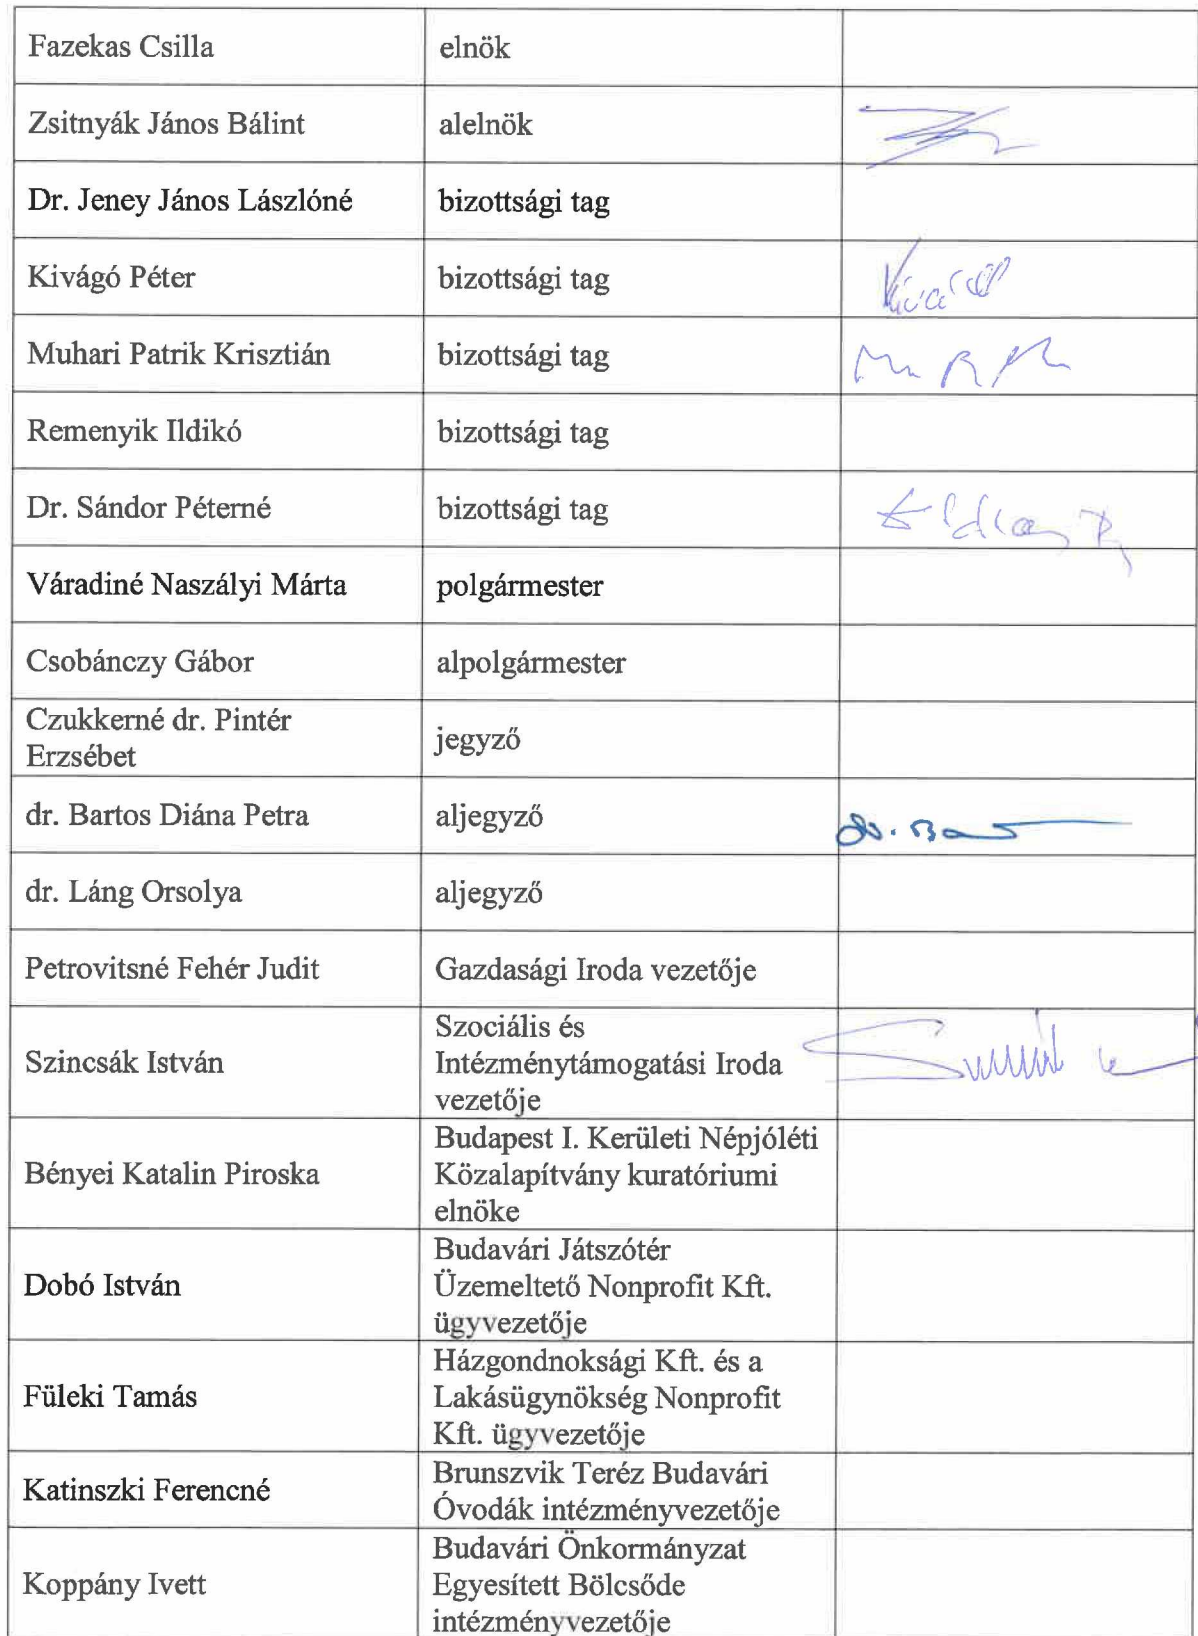 Fazekas Csilla
elnök
Zsitnyák János Bálint
alelnök
Dr. Jeney János Lászlóné
bizottsági tag
Kivágó Péter
bizottsági tag
Muhari Patrik Krisztián
bizottsági tag
Remenyik Ildikó
bizottsági tag
Dr. Sándor Péterné
bizottsági tag
Váradiné Naszályi Márta
polgármester
Csobánczy Gábor
alpolgármester
Czukkerné dr. Pintér
Erzsébet
jegyző
dr. Bartos Diána Petra
aljegyző
dr. Láng Orsolya
aljegyző
Petrovitsné Fehér Judit
Gazdasági Iroda vezetője
Szincsák István
Szociális és
Intézménytámogatási Iroda
vezetője
Bényei Katalin Piroska
Budapest I. Kerületi Népjóléti
Közalapítvány kuratóriumi
elnöke
Dobó István
Budavári Játszótér
Üzemeltető Nonprofit Kft.
ügyvezetője
Füleki Tamás
Házgondnoksági Kft. és a
Lakásügynökség Nonprofit
Kft. ügyvezetője
Katinszki Ferencné
Brunszvik Teréz Budavári
Óvodák intézményvezetője
Koppány Ivett
Budavári Önkormányzat
Egyesített Bölcsőde
intézményvezetője